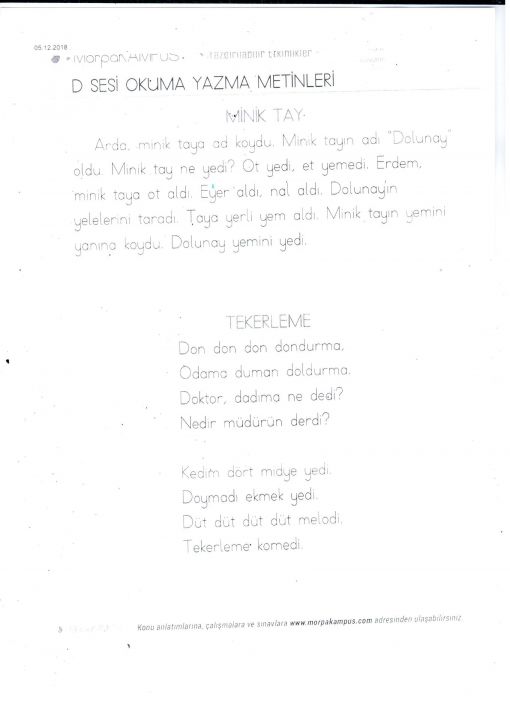 05.12.2018
MorpaKAMPÜS
Yazdırılabilir Etkinlikler
D SESİ OKUMA YAZMA METİNLERİ
MİNİK TAY
Arda, minik taya ad koydu. Minik tayın adı "Dolunay"
oldu. Minik tay ne yedi? Ot yedi, et yemedi. Erdem,
minik taya ot aldı. Eyer aldı, nal aldı. Dolunayin
yelelerini taradı. Taya yerli yem aldı. Minik tayın yemini
yanına koydu. Dolunay yemini yedi.
TEKERLEME
Don don don dondurma,
Odama duman doldurma.
Doktor, dadıma ne dedi?
Nedir müdürün derdi?
Kedim dört midye yedi.
Doymadı ekmek yedi.
Düt düt düt düt melodi.
Tekerleme komedi.
Konu anlatımlarına, çalışmalara ve sınavlara www.morpakampus.com adresinden ulaşabilirsiniz.